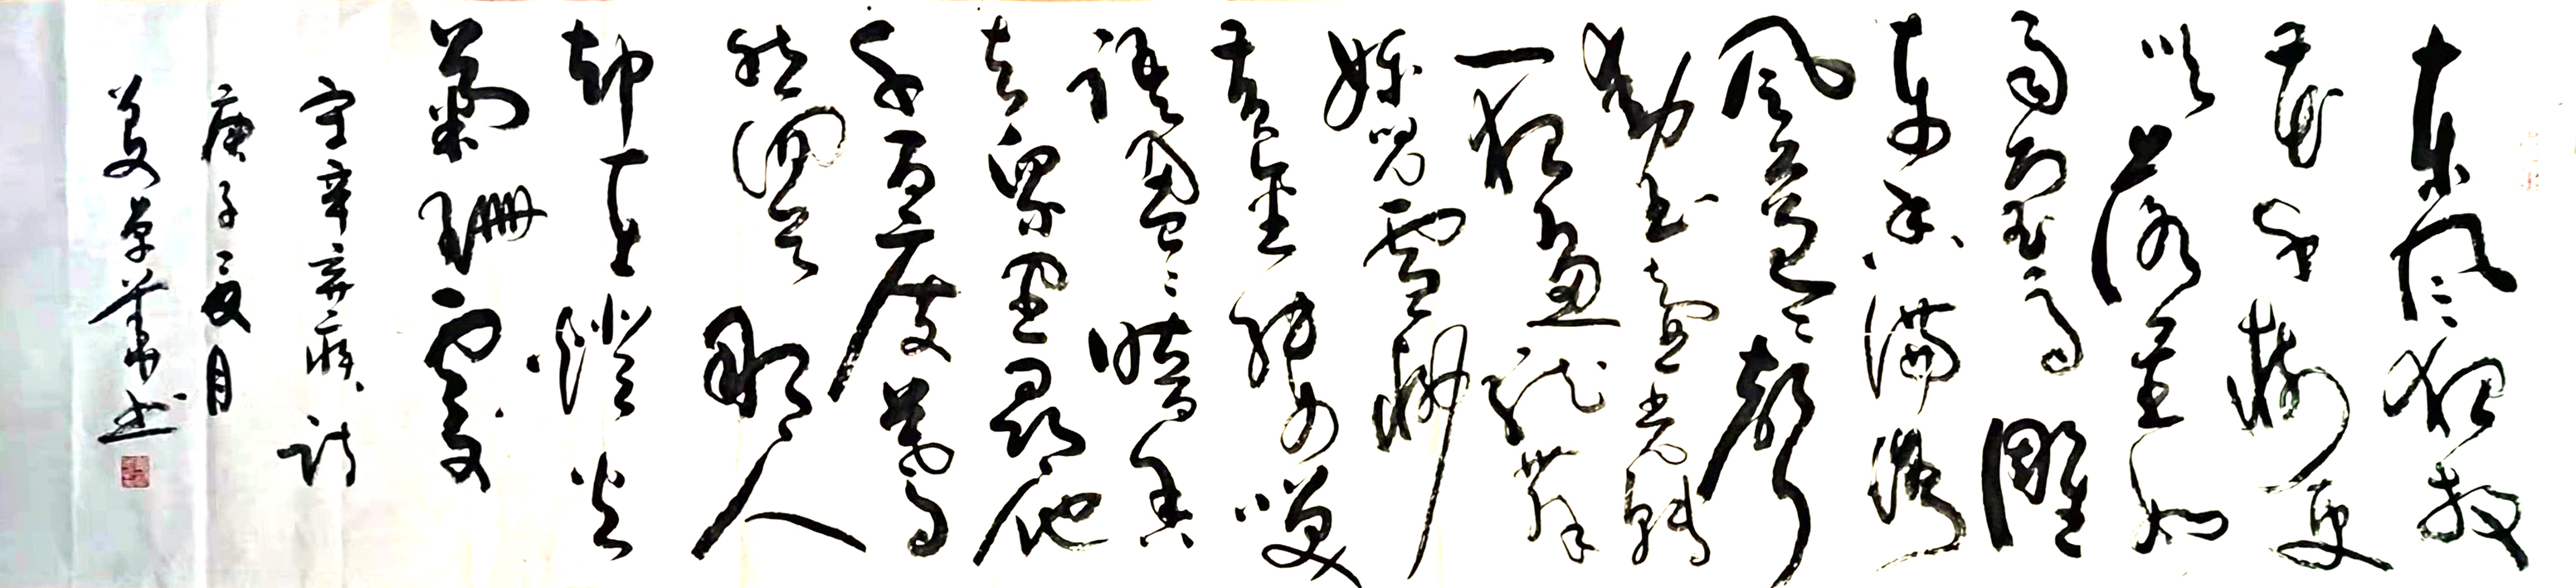 东风夜放
花千树更
吹落星如
雨宝马雕
车香满路
凤箫声
动玉壶光转
一夜鱼龙舞
蛾儿雪柳
黄金缕笑
语盈盈暗香
去众里寻他
千百度蓦
然回首那人
却在灯火
阑珊处
宋辛弃疾诗
庚子夏月